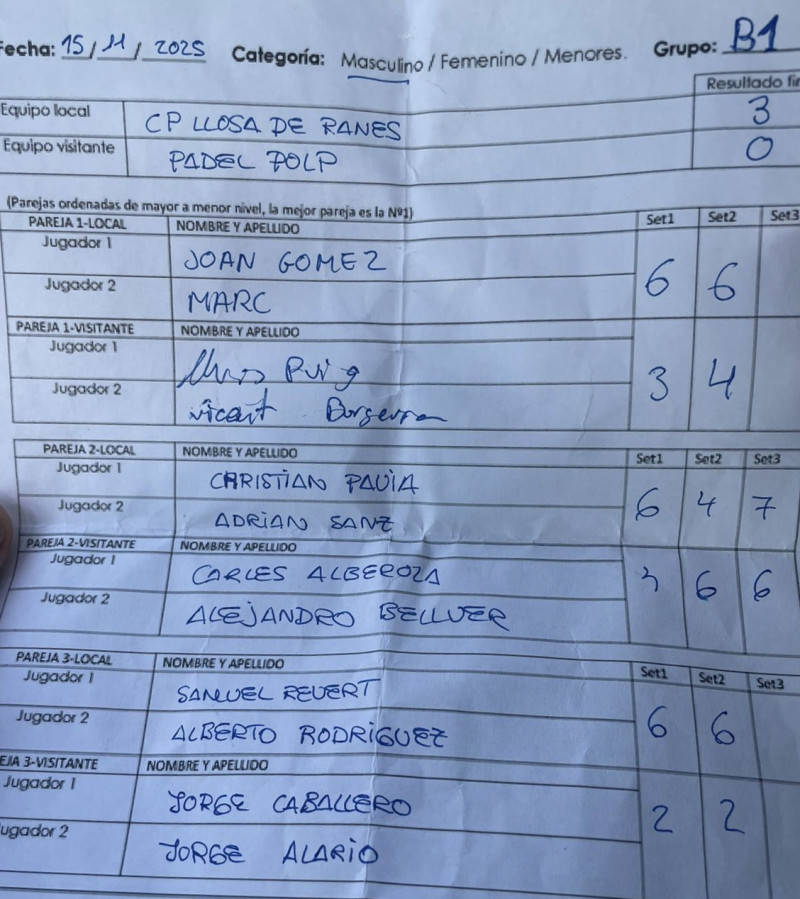 Fecha: 15/11/2025 Categoría: Masculino / Femenino / Menores. Grupo: B1
Resultado fin
Equipo local CP LLOSA DE RANES 3
Equipo visitante PADEL POLP 0
(Parejas ordenadas de mayor a menor nivel, la mejor pareja es la Nº1)
PAREJA 1-LOCAL NOMBRE Y APELLIDO Set1 Set2 Set3
Jugador 1 JOAN GOMEZ 6 6
Jugador 2 MARC
PAREJA 1-VISITANTE NOMBRE Y APELLIDO
Jugador 1 Puig 3 4
Jugador 2 Vicent
PAREJA 2-LOCAL NOMBRE Y APELLIDO Set1 Set2 Set3
Jugador 1 CHRISTIAN PAVIA 6 4 7
Jugador 2 ADRIAN SANZ
PAREJA 2-VISITANTE NOMBRE Y APELLIDO
Jugador 1 CARLES ALBEROLA 3 6 6
Jugador 2 ALEJANDRO BELLVER
PAREJA 3-LOCAL NOMBRE Y APELLIDO Set1 Set2 Set3
Jugador 1 SAMUEL REVERT 6 6
Jugador 2 ALBERTO RODRIGUEZ
EJA 3-VISITANTE NOMBRE Y APELLIDO
Jugador 1 JORGE CABALLERO 2 2
ugador 2 JORGE ALARIO